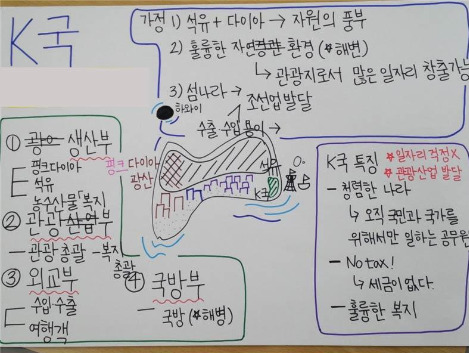 K국
가정 1) 석유 + 다이아 → 자원의 풍부
2) 훌륭한 자연경관 환경 (★해변)
↳ 관광지로서 많은 일자리 창출가능
3) 섬나라 → 조선업 발달
수출 수입 용이
하와이
① 광o 생산부
핑크다이아
석유
농수산물「복지
② 관광산업부
- 관광 총괄 - 복지 총괄
③ 외교부
수입·수출
여행객
④ 국방부
- 국방 (★해병)
핑크 다이아
광산
석유
K국
K국 특징
★일자리 걱정X
★관광산업 발달
- 청렴한 나라
↳ 오직 국민과 국가를
위해서만 일하는 공무원
- No tax!
↳ 세금이 없다.
- 훌륭한 복지